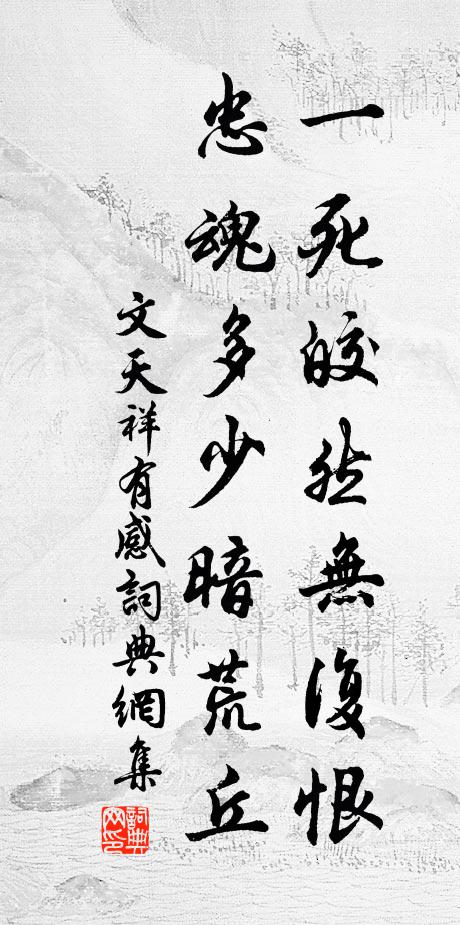 一死皎然無復恨
忠魂多少暗荒丘
文天祥有感詞典網集
詞典網印